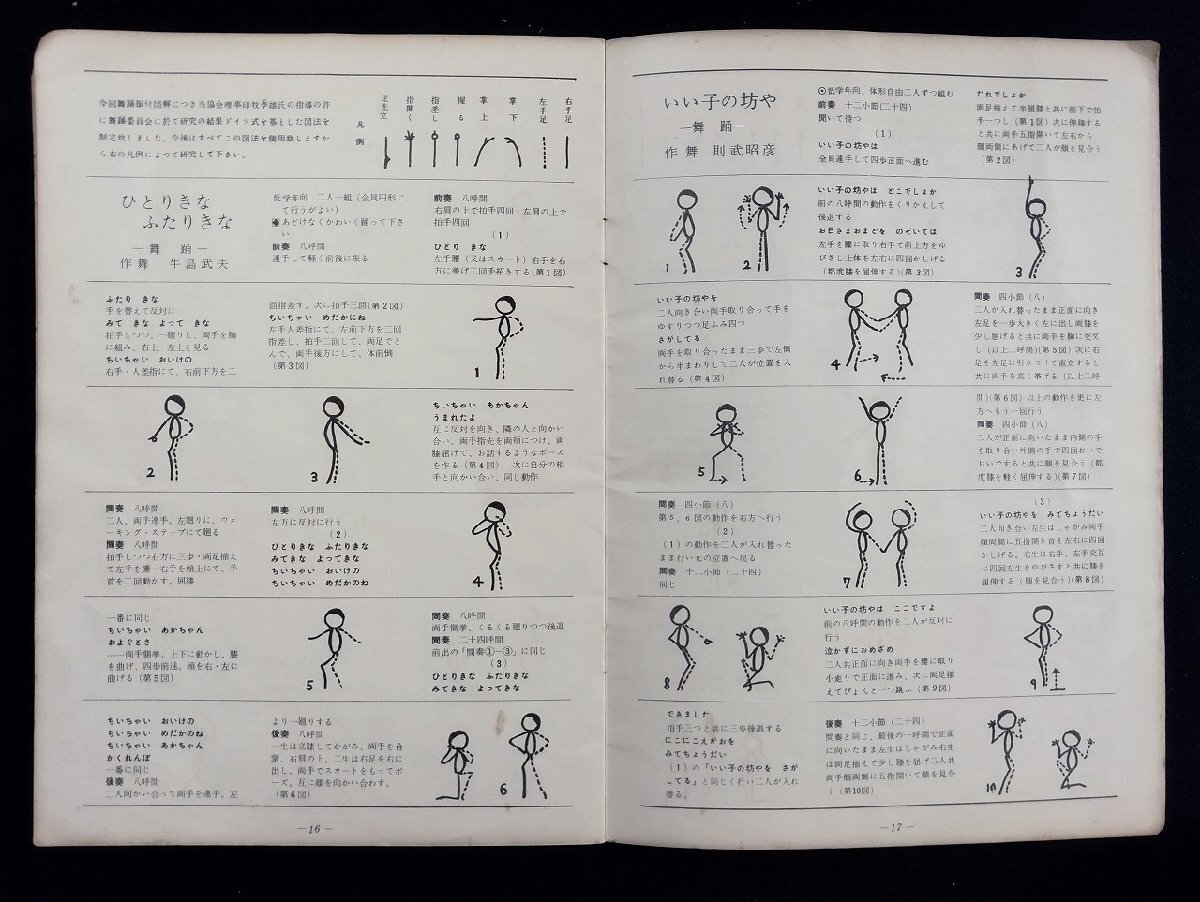 今回舞踊振付図解につき当協会理事印牧季雄氏の指導の許
に舞踊委員会に於て研究の結果ドイツ式を基とした図法を
制定致しました。今後はすべてこの図法を使用致しますか
ら右の凡例によって研究して下さい。
凡例
足先立
指開く
指差し
握る
掌上
掌下
左手足
右手足
ひとりきな
ふたりきな
―舞踊―
作舞 牛島武夫
低学年向 二人一組(全員円形
て行うがよい)
あどけなくかわいく踊って下さ
い
前奏 八呼間
連手して軽く前後に振る
前奏 八呼間
右肩の上で拍手四回・左肩の上で
拍手四回
(1)
ひとり きな
左手腰(又はスカート)右手を右
方に挙げ二回手招きする(第1図)
ふたり きな
手を替えて反対に
みて きな よって きな
拍手しつつ、一廻りし、両手を胸
に組み、右上・左上を見る
ちいちゃい おいけの
右手・人差指にて、右前下方を二
回指差す、次に拍手三回(第2図)
ちいちゃい めだかにね
左手人差指にて、左前下方を二回
指差し、拍手二回して、両足でと
んで、両手後方にして、体前倒
(第3図)
1
2
3
ちぃちゃい あかちゃん
うまれたよ
互に反対を向き、隣の人と向かい
合い、両手指先を両頬につけ、両
膝屈げて、お話するようなポーズ
を作る(第4図) 次に自分の相
手と向かい合い、同じ動作
間奏 八呼間
二人、両手連手。左廻りに、ウォ
ーキング・ステップにて廻る
間奏 八呼間
拍手しつつ右方に三歩・両足揃え
て左手を腰・右手を頭上にて、手
首を二回動かす。屈膝
間奏 八呼間
左方に反対に行う
(2)
ひとりきな ふたりきな
みてきな よってきな
ちいちゃい おいけの
ちいちゃい めだかのね
4
一番に同じ
ちいちゃい あかちゃん
およぐとさ
……両手側挙、上下に動かし、膝
を曲げ、四歩前進。頭を右・左に
曲げる(第5図)
5
間奏 八呼間
両手側挙、くるくる廻りつつ後退
間奏 二十四呼間
前出の「間奏①~③」に同じ
(3)
ひとりきな ふたりきな
みてきな よってきな
ちいちゃい おいけの
ちいちゃい めだかのね
ちいちゃい あかちゃん
かくれんぼ
一番に同じ
後奏 八呼間
二人向かい合って両手を連手。互
より一廻りする
後奏 八呼間
一生は立膝してかがみ、両手を合
掌、右肩の上。二生は右足を右に
出し、両手でスカートをもってポ
ーズ。互に顔を向かい合わす。
(第6図)
6
―16―
いい子の坊や
―舞踊―
作舞 則武昭彦
⊙低学年向 体形自由二人ずつ組む
前奏 十二小節(二十四)
聞いて待つ
(1)
いい子の坊やは
全員連手して四歩正面へ進む
だれでしょか
両足揃えて半屈膝と共に前下で拍
手一つし(第1図)次に伸膝する
と共に両手五指開いて左右から
顔両側にあげて二人が顔を見合う
(第2図)
1
2
いい子の坊やは どこでしょか
前の八呼間の動作をくりかえして
後退する
お日さまおまどを のぞいては
左手を腰に取り右手で前上方をゆ
びさし上体を左右に四回かしげる
(都度膝を屈伸する)(第3図)
3
いい子の坊やを
二人向き合い両手取り合って手を
ゆすりつつ足ふみ四つ
さがしてる
両手を取り合ったまま三歩で左側
から半まわりして二人が位置を入
れ替る(第4図)
4
間奏 四小節(八)
二人が入れ替ったまま正面に向き
左足を一歩大きく左に出し両膝を
少し屈げると共に両手を胸に交叉
し(以上二呼間)(第5図)次に右
足を左足に引きつけて直立すると
共に両手を高く挙げる(以上二呼
5
6
間)(第6図)以上の動作を更に左
方へもう一回行う
間奏 四小節(八)
二人が正面に向いたまま内側の手
を取り合い外側の手で四回おいで
おいですると共に顔を見合う(都
度膝を軽く屈伸する)(第7図)
間奏 四小節(八)
第5、6図の動作を右方へ行う
(2)
(1)の動作を二人が入れ替った
まま行い元の位置へ戻る
間奏 十二小節(二十四)
同じ
7
(3)
いい子の坊やを みてちょうだい
二人向き合い左生はしゃがみ両手
顔両側に五指開き首を左右に四回
かしげる。右生は右手、左手交互
に四回左生をゆびさすと共に膝を
屈伸する(顔を見合う)(第8図)
8
いい子の坊やは ここですよ
前の八呼間の動作を二人が反対に
行う
泣かずにおめざめ
二人共正面に向き両手を腰に取り
小走りで正面に進み、次に両足揃
えてぴょんと一つ跳ぶ(第9図)
9
できました
拍手三つと共に三歩後退する
にこにこえがおを
みてちょうだい
(1)の「いい子の坊やを さが
してる」と同じく行い二人が入れ
替る。
後奏 十二小節(二十四)
間奏と同じ、最後の一呼間で正面
に向いたまま左生はしゃがみ右生
は両足揃えて少し膝を屈げ二人共
両手顔両側に五指開いて顔を見合
う(第10図)
10
―17―